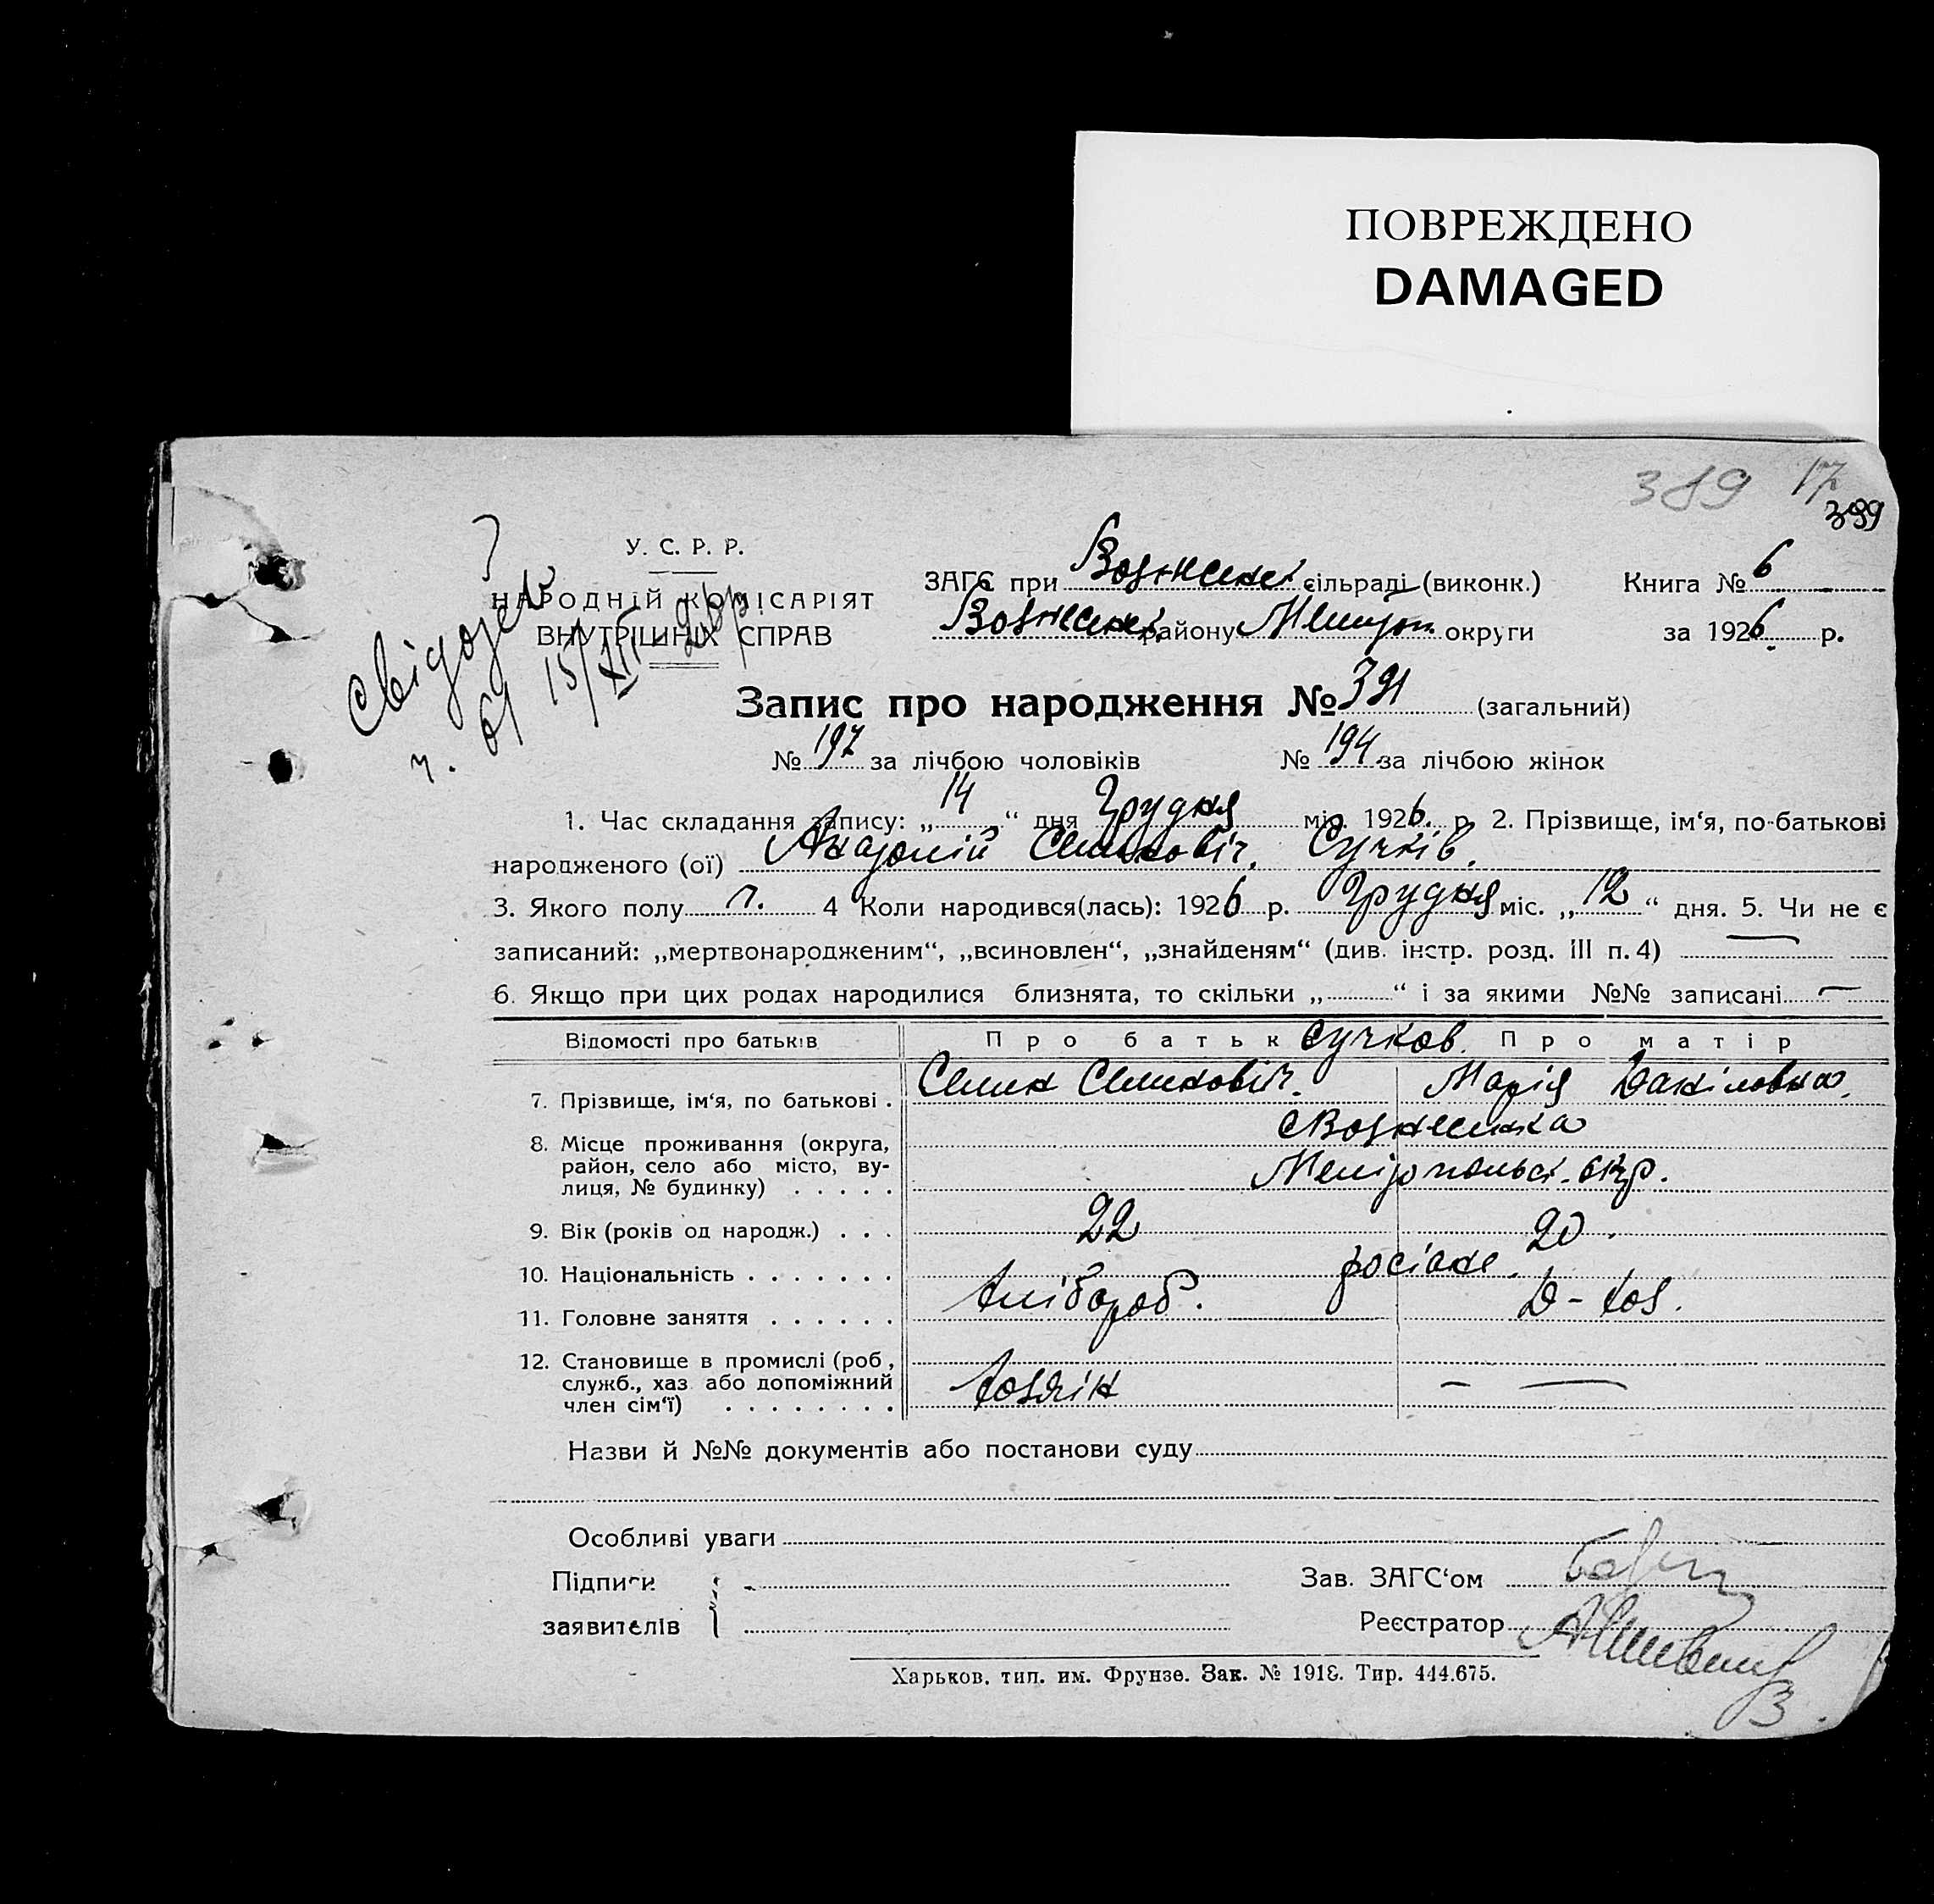 ПОВРЕЖДЕНО
DAMAGED
389 17
399
У. С. Р. Р.
НАРОДНІЙ КОМІСАРІЯТ
ВНУТРІШНІХ СПРАВ
ЗАГС при Вознесенс. сільраді (виконк.) Книга № 6
Вознесенс. району Меліτοп. округи за 1926 р.
Запис про народження № 391 (загальний)
№ 197 за лічбою чоловіків № 194 за лічбою жінок
1. Час складання запису: „14“ дня Грудня міс. 1926. р. 2. Прізвище, ім‘я, по-батькові
народженого (ої) Анатолій Семенович. Сучків.
3. Якого полу ч. 4 Коли народився(лась): 1926 р. Грудня міс. „12“ дня. 5. Чи не є
записаний: „мертвонародженим“, „всиновлен“, „знайденям“ (див. інстр. розд. III п. 4) —
6. Якщо при цих родах народилися близнята, то скільки „ “ і за якими №№ записані —
Відомості про батьків Про батьк Сучков. Про матір
7. Прізвище, ім‘я, по батькові . Семен Семенович. Марія Даніловна.
8. Місце проживання (округа, район, село або місто, вулиця, № будинку) . . . . . с Вознесенка
Мелітопольс. окр.
9. Вік (років од народж.) . . . 22 20.
10. Національність . . . . . . . росіане.
11. Головне заняття . . . . . . хлібороб. д-хоз.
12. Становище в промислі (роб., служб., хаз. або допоміжний член сім‘ї) . . . . . . . . хозяін — —
Назви й №№ документів або постанови суду
Особливі уваги
Підписи Зав. ЗАГС‘ом
заявителів Реєстратор
Харьков. тип. им. Фрунзе. Зак. № 1918. Тир. 444.675.
3